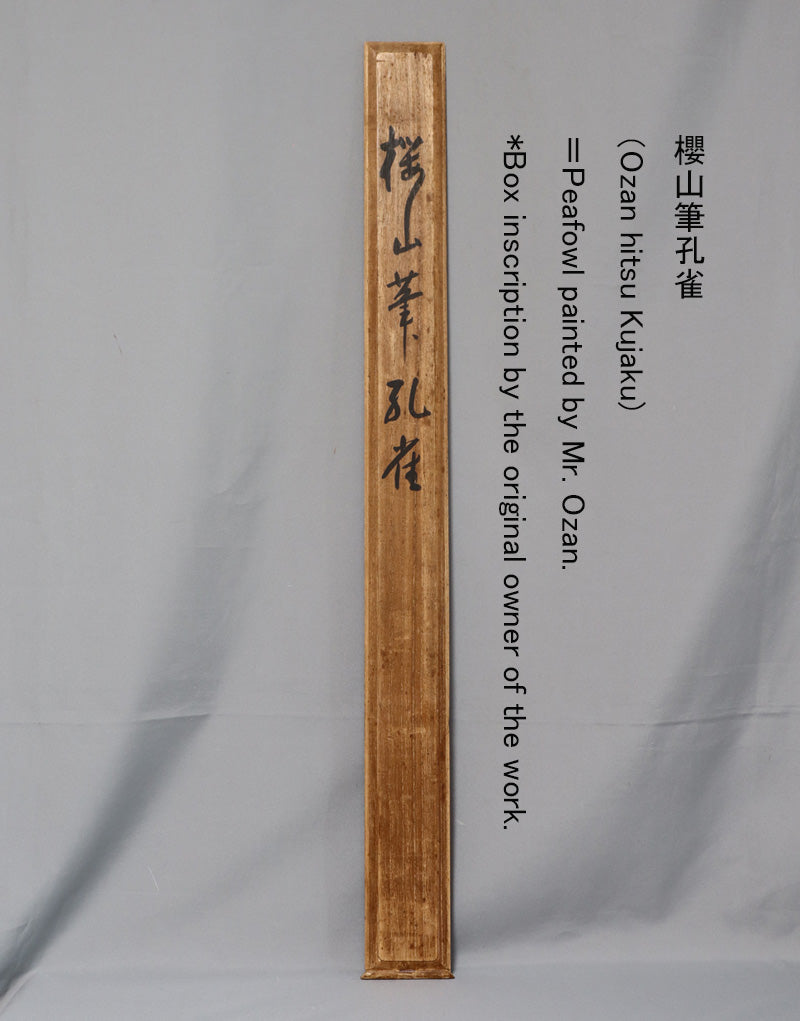 櫻山筆孔雀
(Ozan hitsu Kujaku)
=Peafowl painted by Mr. Ozan.
*Box inscription by the original owner of the work.
櫻山筆孔雀